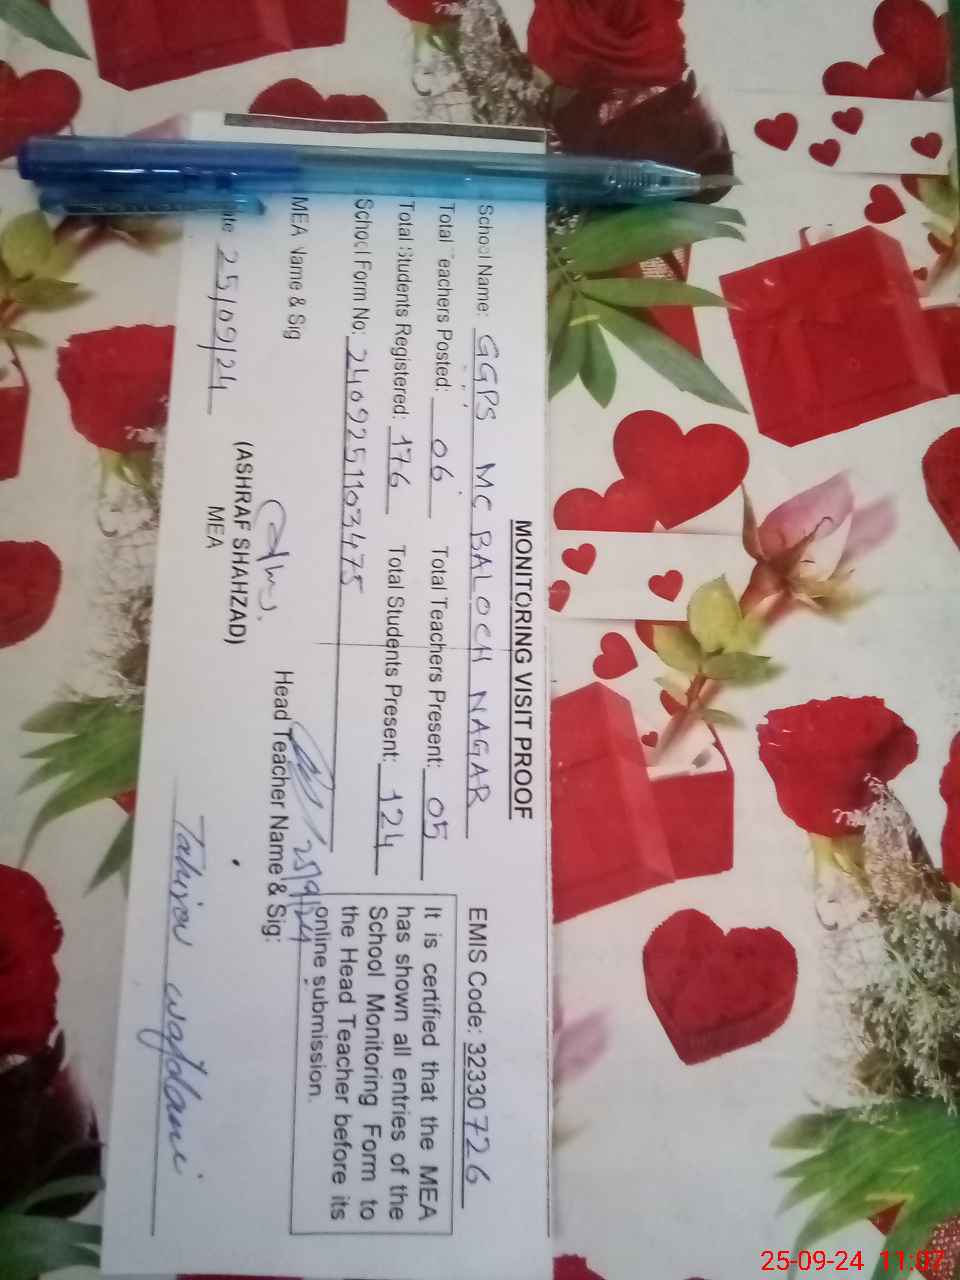 MONITORING VISIT PROOF
School Name: GGPS MC BALOCH NAGAR EMIS Code: 32330726
Total Teachers Posted: 06 Total Teachers Present: 05
Total Students Registered: 176 Total Students Present: 124
School Form No: 2409251103475
It is certified that the MEA
has shown all entries of the
School Monitoring Form to
the Head Teacher before its
online submission.
25/9/24
MEA Name & Sig Head Teacher Name & Sig:
(ASHRAF SHAHZAD)
MEA
Date 25/09/24
25-09-24 11:07